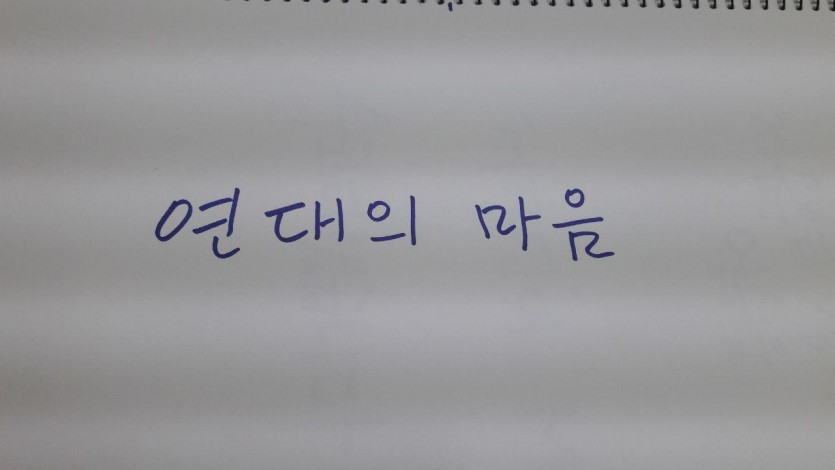 연대의 마음